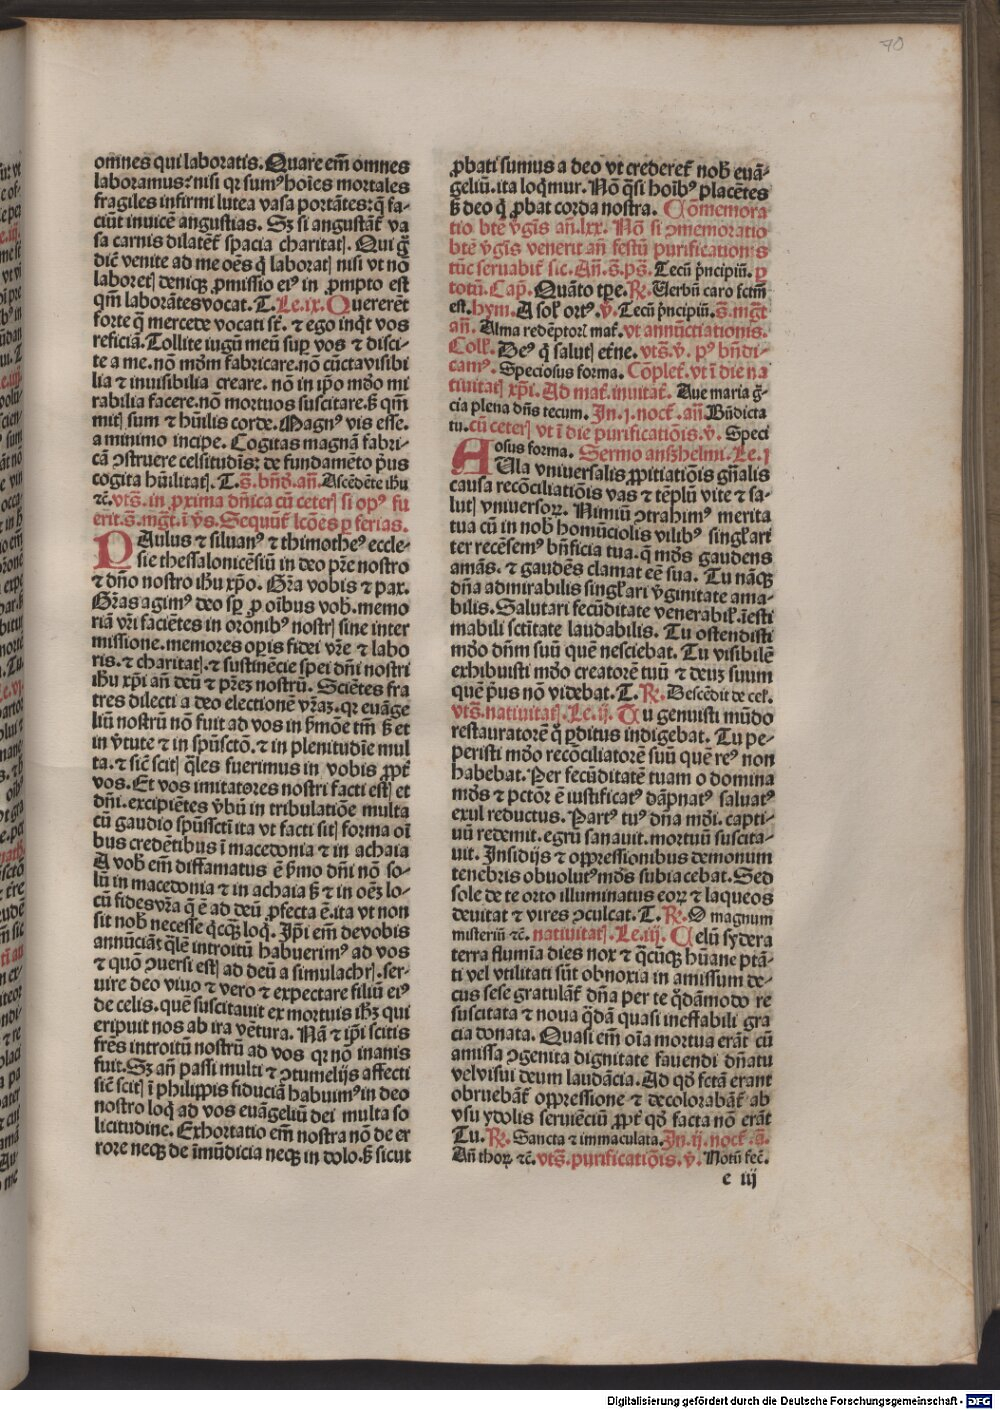 70
omnes qui laboratis. Quare em̄ omnes
laboramus: nisi qꝛ sumꝰ hoīes mortales
fragiles infirmi lutea vasa portātes: q̄ fa-
ciūt inuicē angustias. Sꝫ si angustāt̄ va
sa carnis dilatēt̄ spacia charitatꝭ. Qui g̊
diē venite ad me oēs q̇ laboratꝭ nisi vt nō
laboretꝭ deniqꝫ ꝓmissio eiꝰ in ꝓmpto est
qm̄ laborātes vocat. T. Le.ix. Quererēt
forte q̄ mercede vocati st̄. ⁊ ego inq̇t vos
reficiā. Tollite iugū meū suꝑ vos ⁊ disci-
te a me. nō mōm fabricare. nō cūcta visibi
lia ⁊ inuisibilia creare. nō in ip̄o mūo mi
rabilia facere. nō mortuos suscitare. ꝫ qm̄
mitꝭ sum ⁊ hūilis corde. Magnꝰ vis esse.
a minimo incipe. Cogitas magnā fabri-
cā ꝯstruere celsitudīs: de fundamēto pͥus
cogita hūilitatꝭ. T. s̄. bn̄d. an̄. Ascēdēte ihū
⁊c̄. vts̄. in ꝓxima dn̄ica cū ceterꝭ si opꝰ fu
erit. s̄. mḡt. ī v̄s. Sequūt̄ lcōēs ꝑ ferias.
PAulus ⁊ siluanꝰ ⁊ thimotheꝰ eccle-
sie thessalonicēsiū in deo pr̄e nostro
⁊ dn̄o nostro ihū xp̄o. Gr̄a vobis ⁊ pax.
Gr̄as agimꝰ deo sꝑ ꝓ oībus vob̄. memo
riā vr̄i faciētes in orōnibꝰ nostrꝭ sine inter
missione. memores oꝑis fidei vr̄e ⁊ labo
ris. ⁊ charitatꝭ. ⁊ sustinēcie spei dn̄i nostri
ihū xp̄i an̄ deū ⁊ pr̄eꝫ nostrū. Sciētes fra
tres dilecti a deo electionē vr̄aꝫ. qꝛ euāge
liū nostrū nō fuit ad vos in ẜmōe tm̄ ꝫ et
in v̄tute ⁊ in spūsctō. ⁊ in plenitudīe mul
ta. ⁊ sic̄ scitꝭ q̄les fuerimus in vobis ꝓpt̄
vos. Et vos imitatores nostri facti estꝭ et
dn̄i. excipiētes v̄bū in tribulatiōe multa
cū gaudio spūsscti ita vt facti sitꝭ forma oī
bus credētibus ī macedonia ⁊ in achaia
A vob̄ em̄ diffamatus ē ẜmo dn̄i nō so-
lū in macedonia ⁊ in achaia ꝫ ⁊ in oēꝫ lo-
cū fides vr̄a q̄ ē ad deū ꝓfecta ē. ita vt non
sit nob̄ necesse qͥcqꝫ loq̇. Ip̄i em̄ de vobis
annūciāt q̄lē introitū habuerimꝰ ad vos
⁊ quō ꝯuersi estꝭ ad deū a simulachrꝭ. ser-
uire deo viuo ⁊ vero ⁊ expectare filiū eiꝰ
de celis. quē suscitauit ex mortuis ihꝫ qui
eripuit nos ab ira vētura. Nā ⁊ ip̄i scitis
fr̄es introitū nostrū ad vos qꝛ nō inanis
fuit. Sꝫ an̄ passi multi ⁊ ꝯtumelijs affecti
sic̄ scitꝭ ī philippis fiduciā habuimꝰ in deo
nostro loq̇ ad vos euāgeliū dei multa so
licitudine. Exhortatio em̄ nostra nō de er
rore neqꝫ de īmūdicia neqꝫ in dolo. ꝫ sicut
ꝓbati sumus a deo vt crederet̄ nob̄ euā-
geliū. ita loq̇mur. Nō q̄si hoībꝰ placētes
ꝫ deo q̇ ꝓbat corda nostra. Cōmemora
tio bt̄e v̄gīs an̄. lxx. Nō si ꝯmemoratio
bt̄e v̄gīs venerit an̄ festū purificationis
tūc seruabit̄ sic. An̄. s̄. ps̄. Tecū pͥncipiū. ꝑ
totū. Cap̄. Quāto tp̄e. R̄. Verbū caro fctm̄
est. hym. A sol̄ ortꝰ. v̄. Tecū pͥncipiū. s̄. mḡt
an̄. Alma redēptorꝭ mat̄. vt annūctiationis.
Coll̄. Deꝰ q̇ salutꝭ et̄ne. vts̄. v̄. pꝰ bn̄di-
camꝰ. Speciosus forma. Cōplet̄. vt ī die na
tiuitatꝭ xp̄i. Ad mat̄. inuitat̄. Aue maria ḡ-
cia plena dn̄s tecum. In.j. noct̄. an̄. Bn̄dicta
tu. cū ceterꝭ vt ī die purificatiōis. v̄. Speci
osus forma. Sermo anßhelmi. Le.j
AUla vniuersalis ꝓpitiatiōis gn̄alis
causa recōciliatiōis vas ⁊ tēplū vite ⁊ sa-
lutꝭ vniuersoꝝ. Nimiū ꝯtrahimꝰ merita
tua cū in nob̄ homūciolis vilibꝰ singl̄ari
ter recēsemꝰ bn̄ficia tua. q̄ mūdꝰ gaudens
amās. ⁊ gaudēs clamat eē sua. Tu nāqꝫ
dn̄a admirabilis singl̄ari v̄ginitate ama-
bilis. Salutari fecūditate venerabil̄. īesti
mabili sctītate laudabilis. Tu ostendisti
mūo dn̄m suū quē nesciebat. Tu visibilē
exhibuisti mūo creatorē tuū ⁊ deuꝫ suum
quē pͥus nō videbat. T. R̄. Descēdit de cel̄.
vts̄. natiuitatꝭ. Le.ij. Tu genuisti mūdo
restauratorē q̊ ꝑditus indigebat. Tu pe-
peristi mūo recōciliatorē suū quē reꝰ non
habebat. Per fecūditatē tuam o domina
mūdꝰ ⁊ pctōr̄ ē iustificatꝰ dāpnatꝰ saluatꝰ
exul reductus. Partꝰ tuꝰ dn̄a mūdi. capti-
uū redemit. egrū sanauit. mortuū suscita-
uit. Insidijs ⁊ oppressionibus demonum
tenebris obuolutꝰ mūdꝰ subiacebat. Sed
sole de te orto illuminatus eoꝝ ⁊ laqueos
deuitat ⁊ vires ꝯculcat. T. R̄. O magnum
misteriū ⁊c̄. natiuitatꝭ. Le.iij. Celū sydera
terra flumīa dies nox ⁊ q̄cūqꝫ hūane ptā-
ti vel vtilitati sūt obnoxia in amissum de-
cus sese gratulāt̄ dn̄a per te q̇dāmodo re
suscitata ⁊ noua q̇dā quasi ineffabili gra
cia donata. Quasi em̄ oīa mortua erāt cū
amissa ꝯgenita dignitate fauendi dn̄atu
vel visui deum laudācia. Ad qd̄ fctā erant
obruebāt̄ oppressione ⁊ decolorabāt̄ ab
vsu ydolis seruiēciū ꝓpt̄ qd̄ facta nō erāt
Tu. R̄. Sancta ⁊ immaculata. In.ij. noct̄. s̄.
An̄ thoꝝ ⁊c̄. vts̄. purificatiōis. v̄. Notū fec̄.
e iij
Digitalisierung gefördert durch die Deutsche Forschungsgemeinschaft - DFG